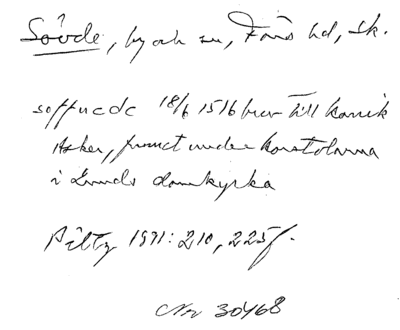 Sövde, by och sn, Färs hd, Sk.
soffwede 18/6 1516 brev till kanik
Asker, funnet under korstolarna
i Lunds domkyrka
Piltz 1991: 210, 225f.
Nr 30468